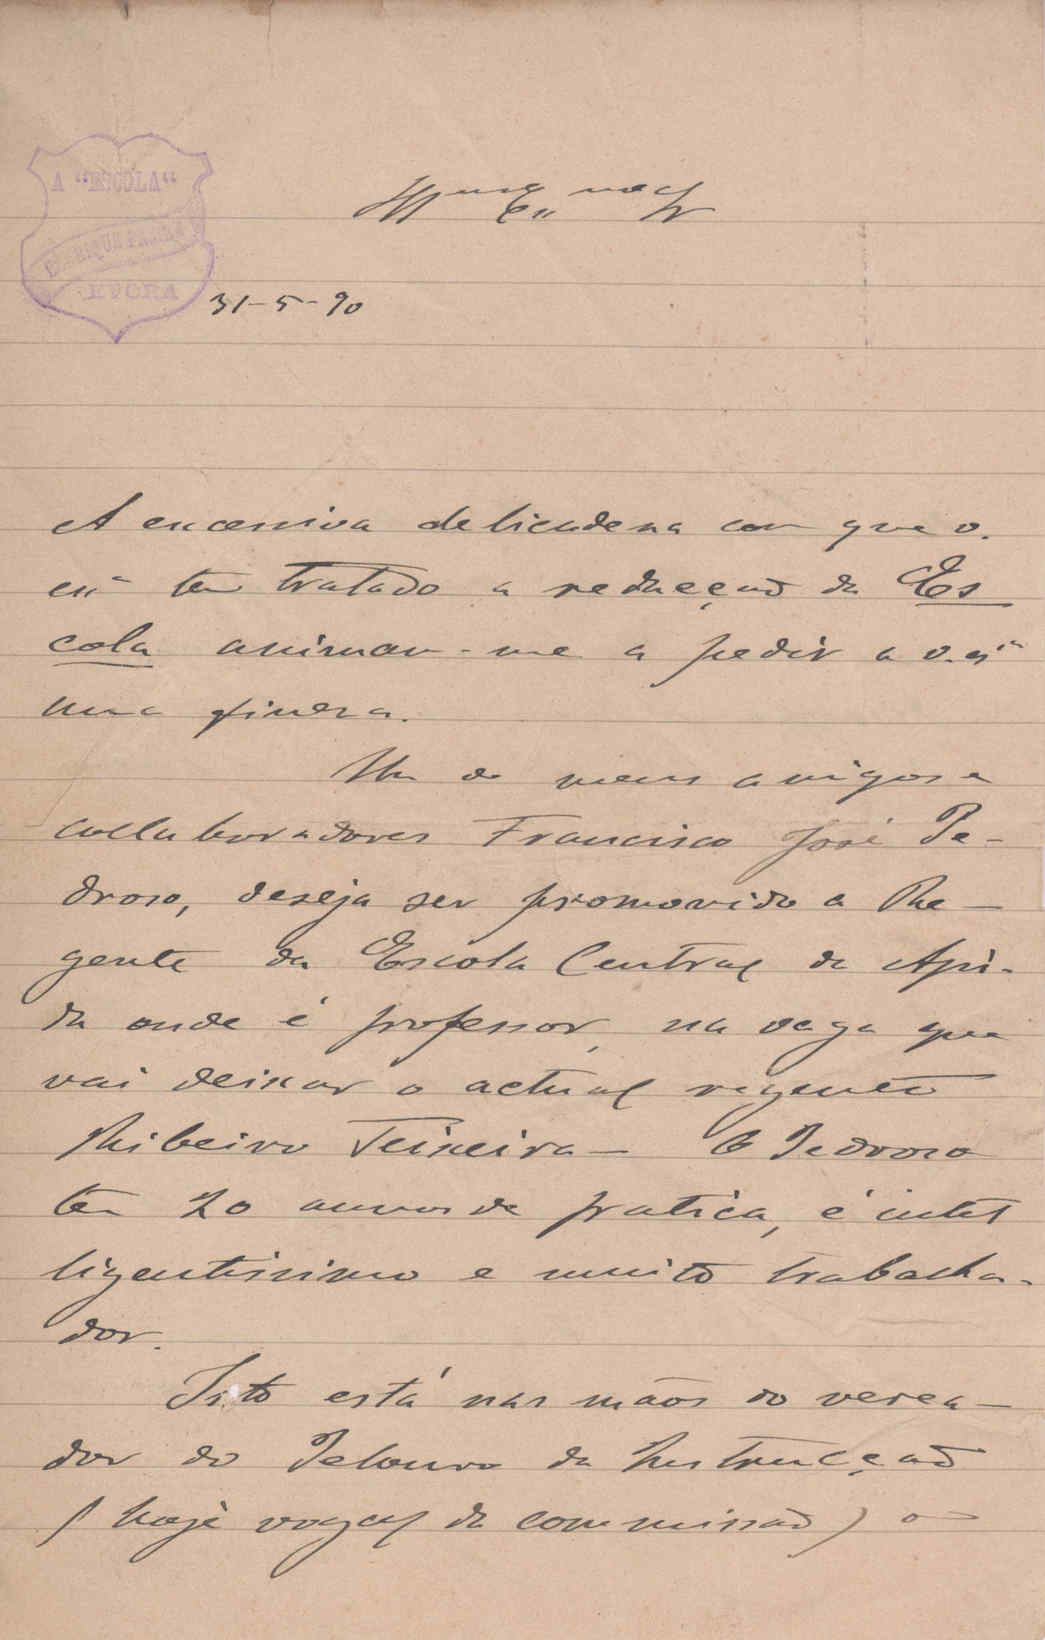 A "ESCOLA"
HENRIQUE FREIRE
EVORA
Illmo Exmo
31-5-90
A excessiva delicadeza com que v.
exª tem tratado a redacção da Es
cola animam-me a pedir a v. exª
uma fineza.
Um dos meus amigos e
collaboradores Francisco José Pe-
droso, deseja ser promovido a Re-
gente da Escola Central de
da onde é professor, na vaga que
vai deixar o actual regente
Ribeiro Teixeira — O Pedroso
tem 20 annos de pratica, é intel
ligentissimo e muito trabalha-
dor.
Isto está nas mãos do verea-
dor do Pelouro da Instrucção
(hoje vogal da commissão) o